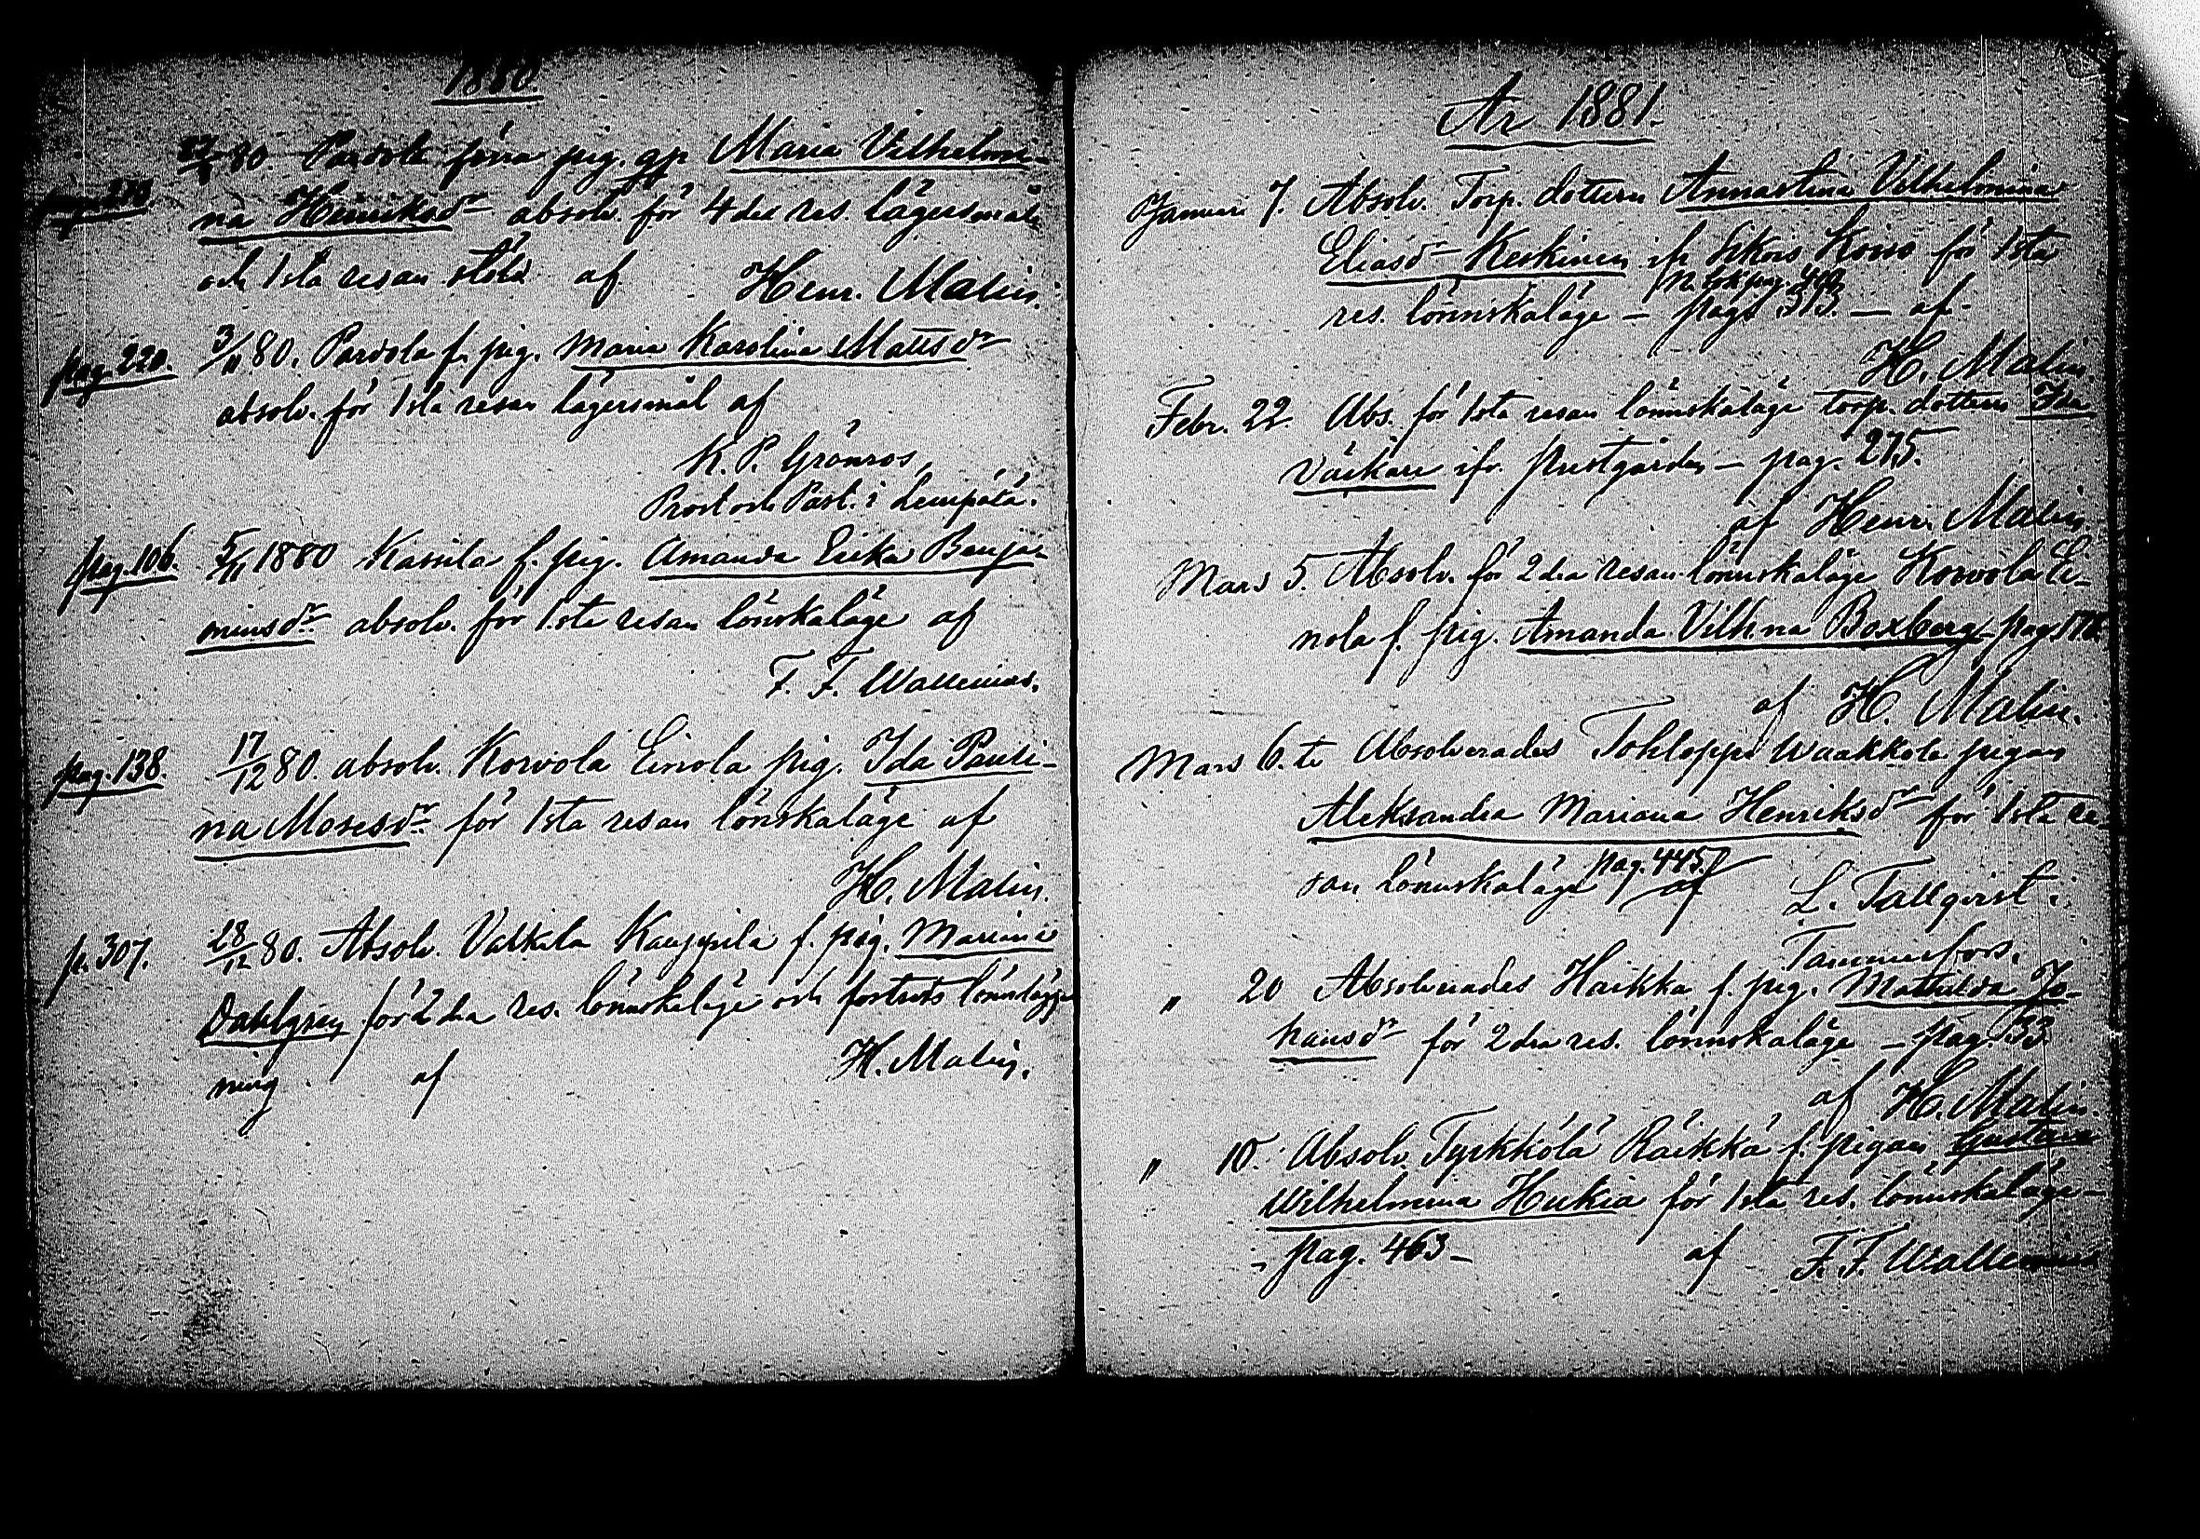 1880
80. Pardola förra pig. gp Maria Vilhelmi-
na Henriksdr absolv. för 4de res. lägersmål
och 1sta resan stöld af Henr. Malin.
pag. 220. 3/11 80. Pardola f. pig. Maria Karolina Mattsdr
absolv. för 1sta resan lägersmål af
K. P. Grönros,
Prost och Past. i Lempälä.
pag. 106. 5/11 1880 Kassila f. pig. Amanda Erika Benja-
minsdr absolv. för 1sta resan lönskaläge af
F. F. Wallenius.
pag. 138. 17/12 80. absolv. Korvola Einola pig. Ida Pauli-
na Mosesdr för 1sta resan lönskaläge af
H. Malin.
p. 307. 28/12 80. Absolv. Valkila Kauppila f. pig. Maria
Dahlgren för 2dra res. lönnskaläge och fosters lönnlägg-
ning af H. Malin.
År 1881.
Januari 7. Absolv. Torp. dottern Annastina Vilhelmina
Eliasdr Keskinen ifr Koivo för 1sta
res. lönnskaläge – pag. 313. – af
H. Malin.
Febr. 22. Abs. för 1sta resan lönnskaläge torp. dottern Ida
Väikäri ifr. prestgården – pag. 275.
af Henr. Malin.
Mars 5. Absolv. för 2dra resan lönnskaläge Korvola Ei-
nola f. pig. Amanda Vilhna Boxberg pag.
af H. Malin.
Mars 6.te Absolverades Tohloppi Waakkola pigan
Aleksandra Mariana Henriksdr för 1sta re-
san lönnskaläge pag. 445. af L. Tallqvist i
Tammerfors.
" 20 Absolverades Haikka f. pig. Mathilda Jo-
hansdr för 2dra res. lönnskaläge – pag. 33.
af H. Malin.
" 10. Absolv. Tyrkkölä Räikkä f. pigan Gustava
Wilhelmina Hukia för 1sta res. lönnskaläge –
– pag. 463 – af F. F. Wallenius